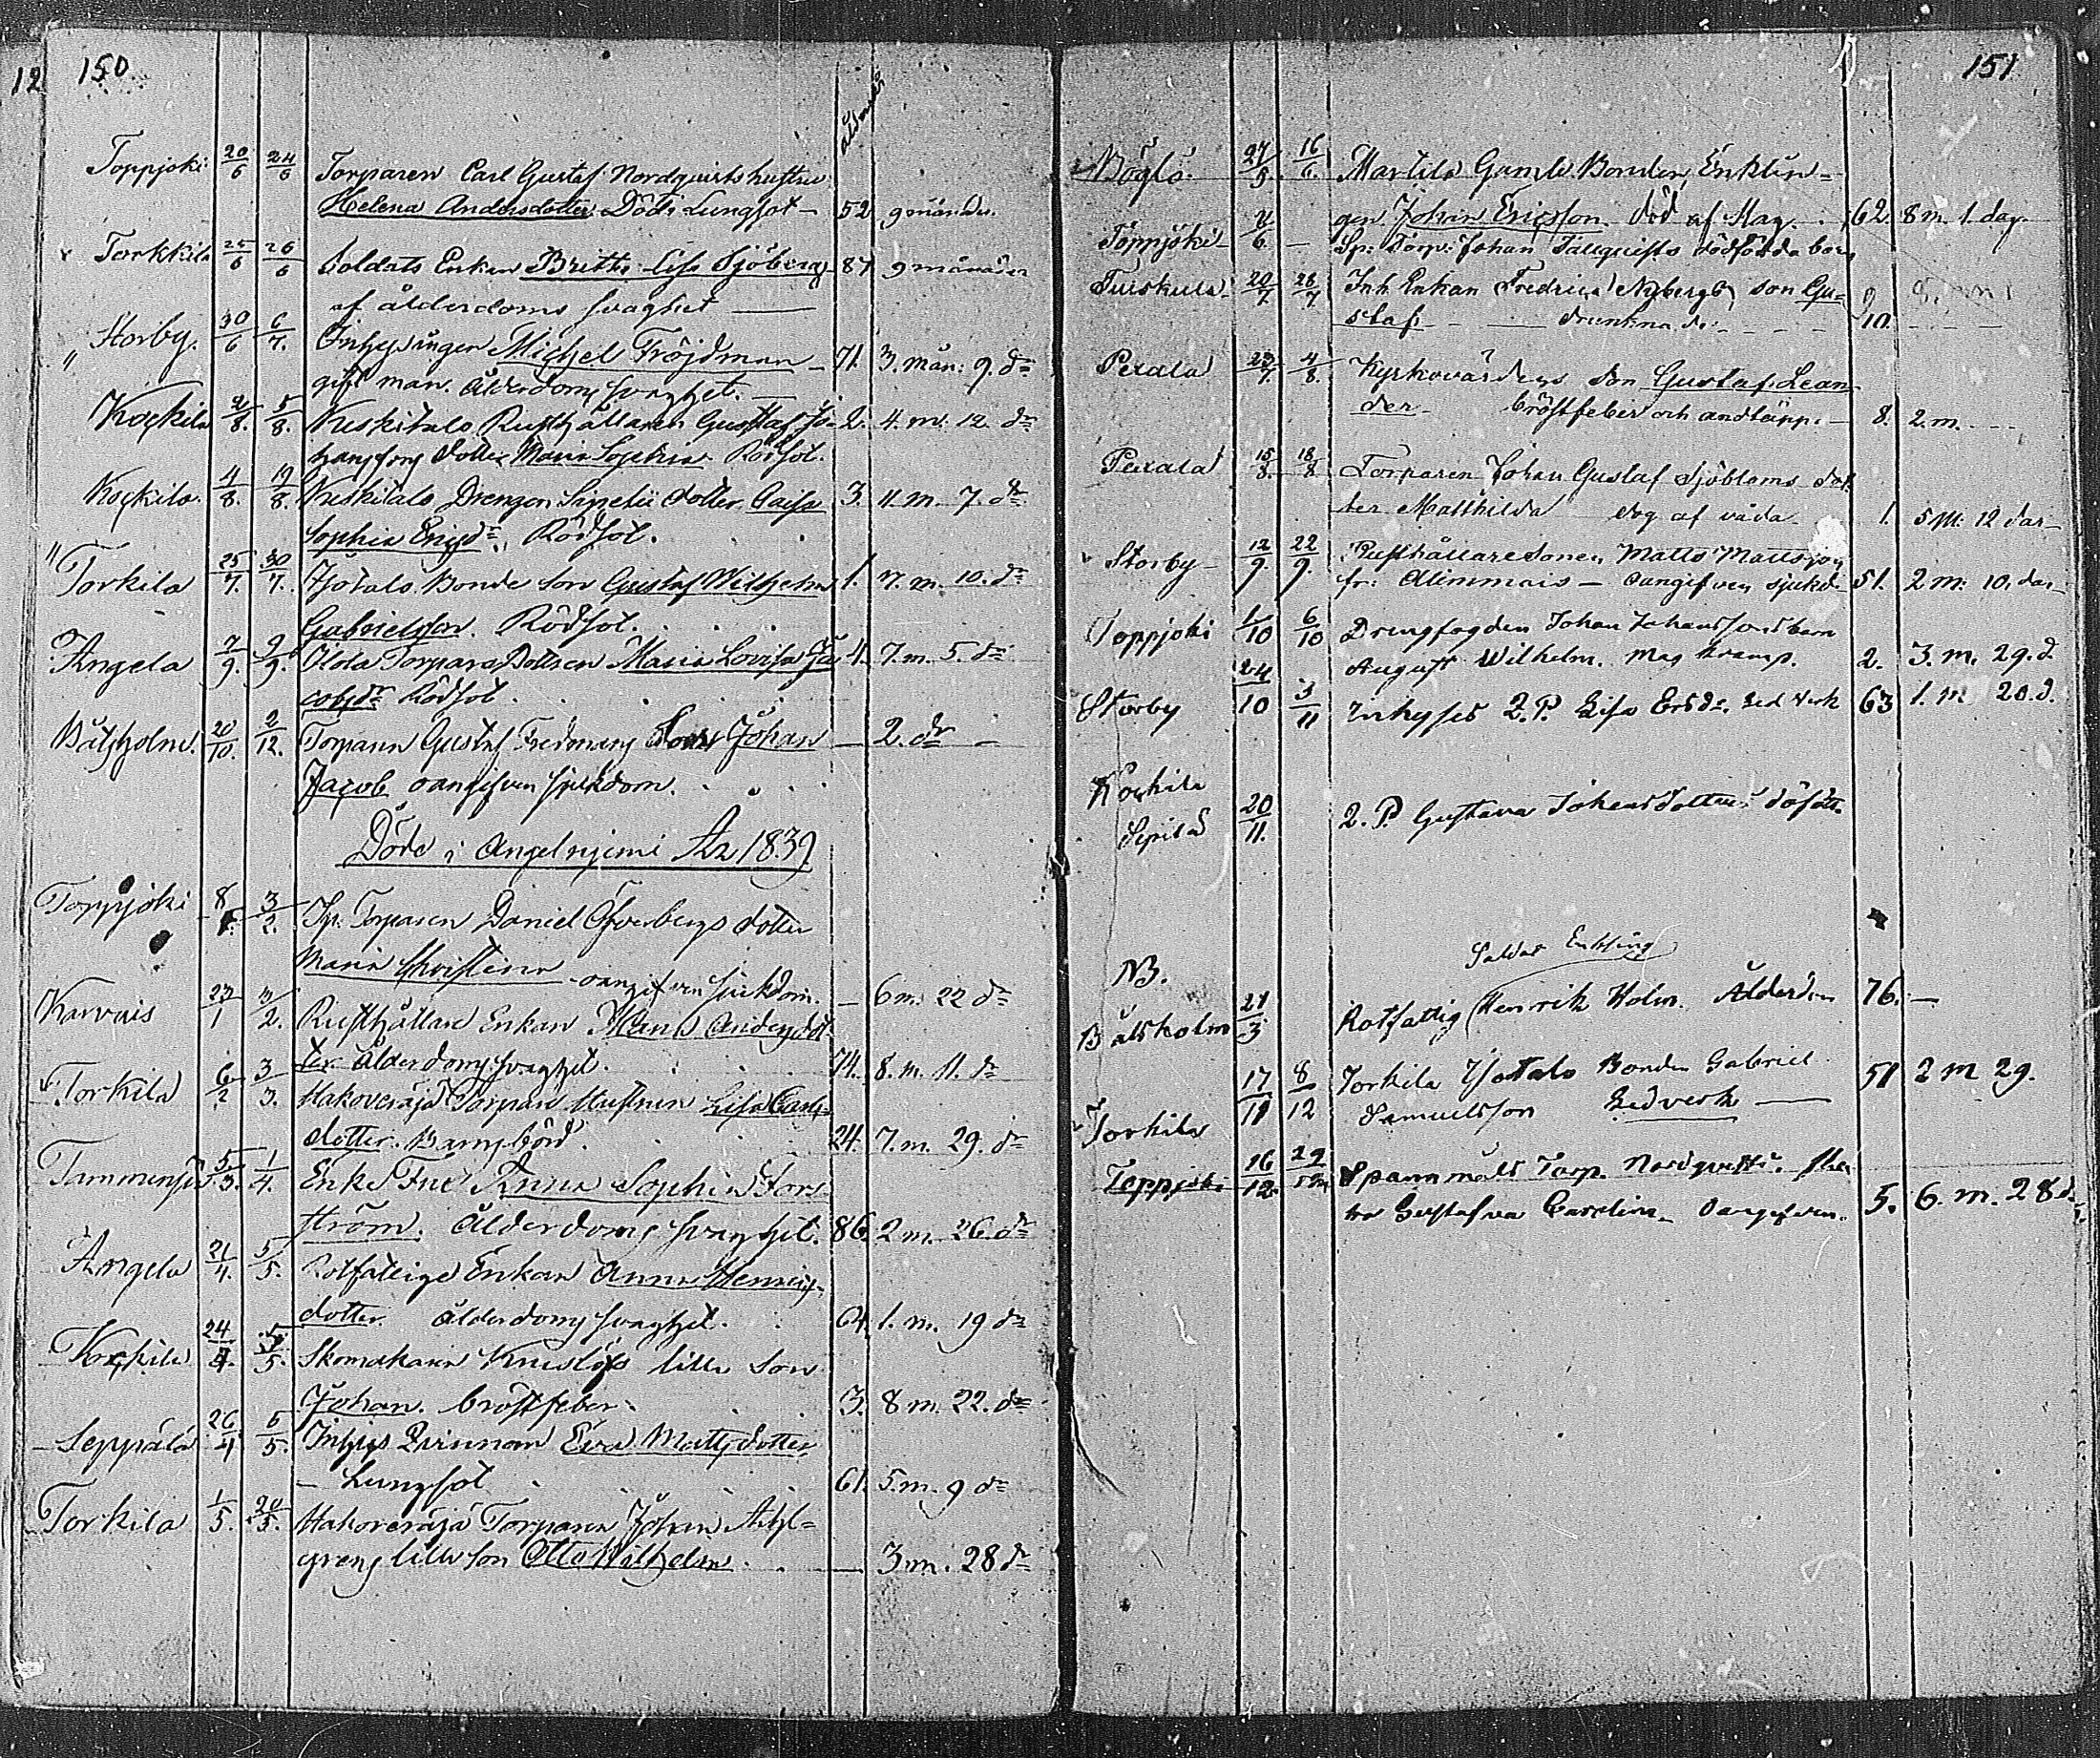 12 150
Ålder
Toppjoki 20/6 24/6 Torparen Carl Gustaf Nordqvists hustru
Helena Andersdotter. Död i Lungsot – 52 9 månader.
Torkkila 25/6 26/6 Soldats Enkan Britta Lisa Sjöberg 87 9 månader
af ålderdoms svaghet
Storby. 30/6 6/7. Inhysingen Michel Fröjdman – 71. 3. mån: 9. dr
gift man. Ålderdoms svaghet. –
Kockila 2/8. 5/8. Keskitalo Rusthållaren Gustaf Jo- 2. 4. m. 12. dr
hanssons dotter Maria Sophia. Rödsot.
Kockila. 4/8. 19/8. Keskitalo Drengen dotter Caisa 3. 4. m. 7. dr
Sophia Ericsdr. Rödsot.
Torkila 25/7. 30/7. Isotalo Bonde son Gustaf Wilhelm 1. 7. m. 10. dr
Gabrielsson. Rödsot.
Angela 7/9. 9/9. Torpare Dottren Maria Lovisa Ja 4. 7. m. 5. dr
cobsdr Rödsot.
Båtsholm. 20/10. 2/12. Torparen Gustaf Fredmans Son Johan – 2. dr –
Jacob oangifven sjukdom.
Döde i Angelniemi År 1839.
Toppjoki 8/1. 3/2. Sp: Torparen Daniel Öfverbergs dotter
Maria Christina – oangifven sjukdom. – 6 m. 22 dr
Karvais 23/1 3/2. Rusthållare Enkan Maria Andersdot-
ter. Ålderdoms svaghet. 74. 8. m. 11. dr
Torkila 6/2 3/3. Hakoveräjä Torpare Hustrun Lisa Carls
dotter. Barnsbörd. 24. 7. m. 29. dr
Tammenpä 5/3. 1/4. Enke Fru Anna Sophia Fors
ström. Ålderdoms svaghet. 86. 2 m. 26. dr
Angela 21/4. 5/5. Rotfattige Enkan Anna Henrics
dotter. Ålderdoms svaghet. 64. 1. m. 19 dr
Kockila 24/4. 5/5. Skomakaren lilla Son
Johan. bröstfeber. 3. 8 m. 22. dr
Seppälä 26/4 5/5. Inhyses Qvinnan Eva Mattsdotter
– Lungsot 61. 5. m. 9 dr
Torkila 1/5. 20/5. Hakoveräjä Torparen Johan Ahl=
grens lille son Otto Wilhelm. – 3. m. 28 dr
151
Böglö. 27/5. 16/6. Martila Gamle Bonden, Enklin=
gen Johan Ericsson. död af Mag. 62. 8 m. 1. dag.
Toppjoki – /6. – Sp: Torp: Johan Tallquists dödfödda barn
Tuiskula. 20/7. 28/7. Inh. Enkan Fredrica Nybergs son Gu= 9
staf. – drunknade. – 10.
Pexala 23/7. 4/8. Kyrkovärdens Son Gustaf Lean
der. bröstfeber och andtäpp. – 8. 2 m.
Pexala 15/8. 18/8 Torparen Johan Gustaf Sjöbloms dot
ter Matthilda dog af våda. 1. 5 M: 12 dar –
Storby – 12/9. 22/9. Rusthållaresonen Matts Mattsson
fr: Alimmais – oangifven sjukd. 51. 2 m. 10. dar –
Toppjoki 1/10 6/10 Drengfogden Johan Johanssons barn
August Wilhelm. Mag kramp. 2. 3. m. 29. d.
Storby 24/10 3/11 Inhyses Q. P. Lisa Ersdr. Led verk 63 1. m 20. d.
Kockila
Sepilä 20/11. Q. P. Gustava Johansdotters dösf.
Soldat Enkling
NB.
Båtsholm 21/3 Rotfattig Henrik Holm. Ålderdom 76. –
Torkila 17/11 8/12 Torkila Isotalo Bonden Gabriel 51 2 m 29.
Samuelsson Ledverk –
Toppjoki 16/12 29/12 Spanmåls Torp. Nordqvists
Gustafva Carolina. Oangifven. 5. 6. m. 28 d.